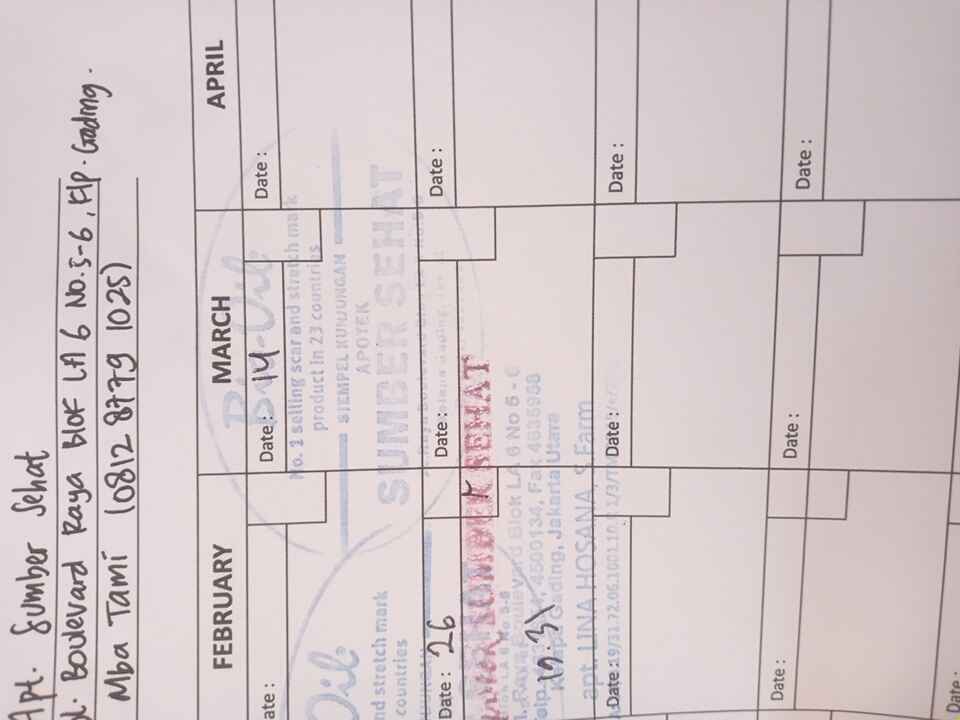 Apt. Sumber Sehat
Boulevard Raya blok LA 6 No. 5-6, Klp. Gading.
Mba Tami (0812 8779 1025)
FEBRUARY MARCH APRIL
Date : 14
Date :
Bio-Oil
No. 1 selling scar and stretch mark
product in 23 countries
STEMPEL KUNJUNGAN
APOTEK
SUMBER SEHAT
ate :
Oil
nd stretch mark
countries
Date : 26
Date :
Date :
SUMBER SEHAT
Blok LA 6 No 5 - 6
4500134, Fax 4585988
Gading, Jakarta Utara
apt. LINA HOSANA, S.Farm
19.31
Date :
Date :
Date :
Date :
Date :
Date :
Date :